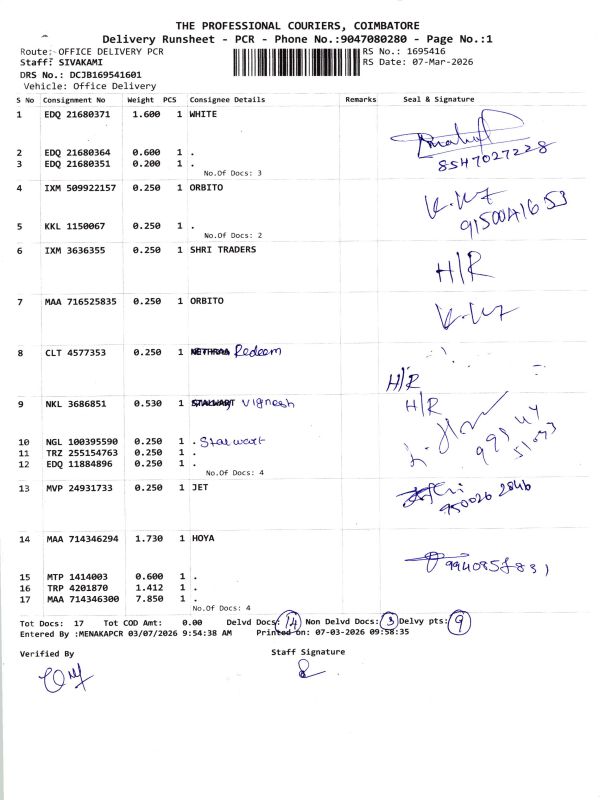 THE PROFESSIONAL COURIERS, COIMBATORE
Delivery Runsheet - PCR - Phone No.:9047080280 - Page No.:1
Route: OFFICE DELIVERY PCR RS No.: 1695416
Staff: SIVAKAMI RS Date: 07-Mar-2026
DRS No.: DCJB169541601
Vehicle: Office Delivery
S No Consignment No Weight PCS Consignee Details Remarks Seal & Signature
1 EDQ 21680371 1.600 1 WHITE
2 EDQ 21680364 0.600 1 .
3 EDQ 21680351 0.200 1 . 8547027228
No.Of Docs: 3
4 IXM 509922157 0.250 1 ORBITO
5 KKL 1150067 0.250 1 . 9150041653
No.Of Docs: 2
6 IXM 3636355 0.250 1 SHRI TRADERS
H/R
7 MAA 716525835 0.250 1 ORBITO
8 CLT 4577353 0.250 1 Redeem
H/R
9 NKL 3686851 0.530 1 STALWART Vignesh H/R
10 NGL 100395590 0.250 1 . Stalwart
11 TRZ 255154763 0.250 1 .
12 EDQ 11884896 0.250 1 .
No.Of Docs: 4
13 MVP 24931733 0.250 1 JET
950026 2846
14 MAA 714346294 1.730 1 HOYA
15 MTP 1414003 0.600 1 .
16 TRP 4201870 1.412 1 .
17 MAA 714346300 7.850 1 .
No.Of Docs: 4
Tot Docs: 17 Tot COD Amt: 0.00 Delvd Docs: 14 Non Delvd Docs: 3 Delvy pts: 9
Entered By :MENAKAPCR 03/07/2026 9:54:38 AM Printed on: 07-03-2026 09:58:35
Verified By Staff Signature